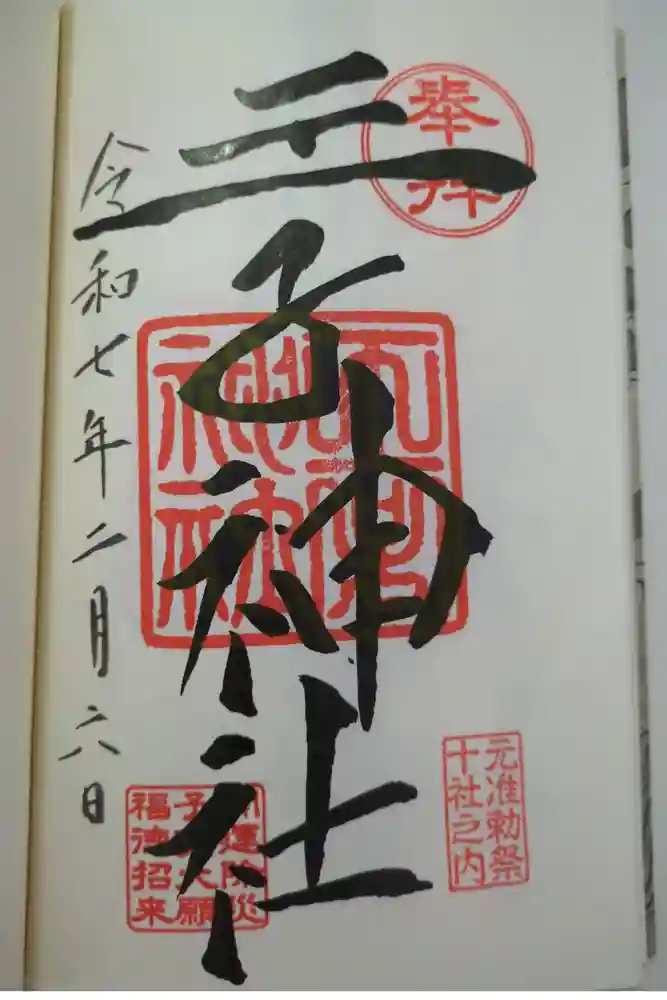 奉拝
王子神社
元准勅祭
十社之内
開運除災
子育大願
福徳招来
令和七年二月六日